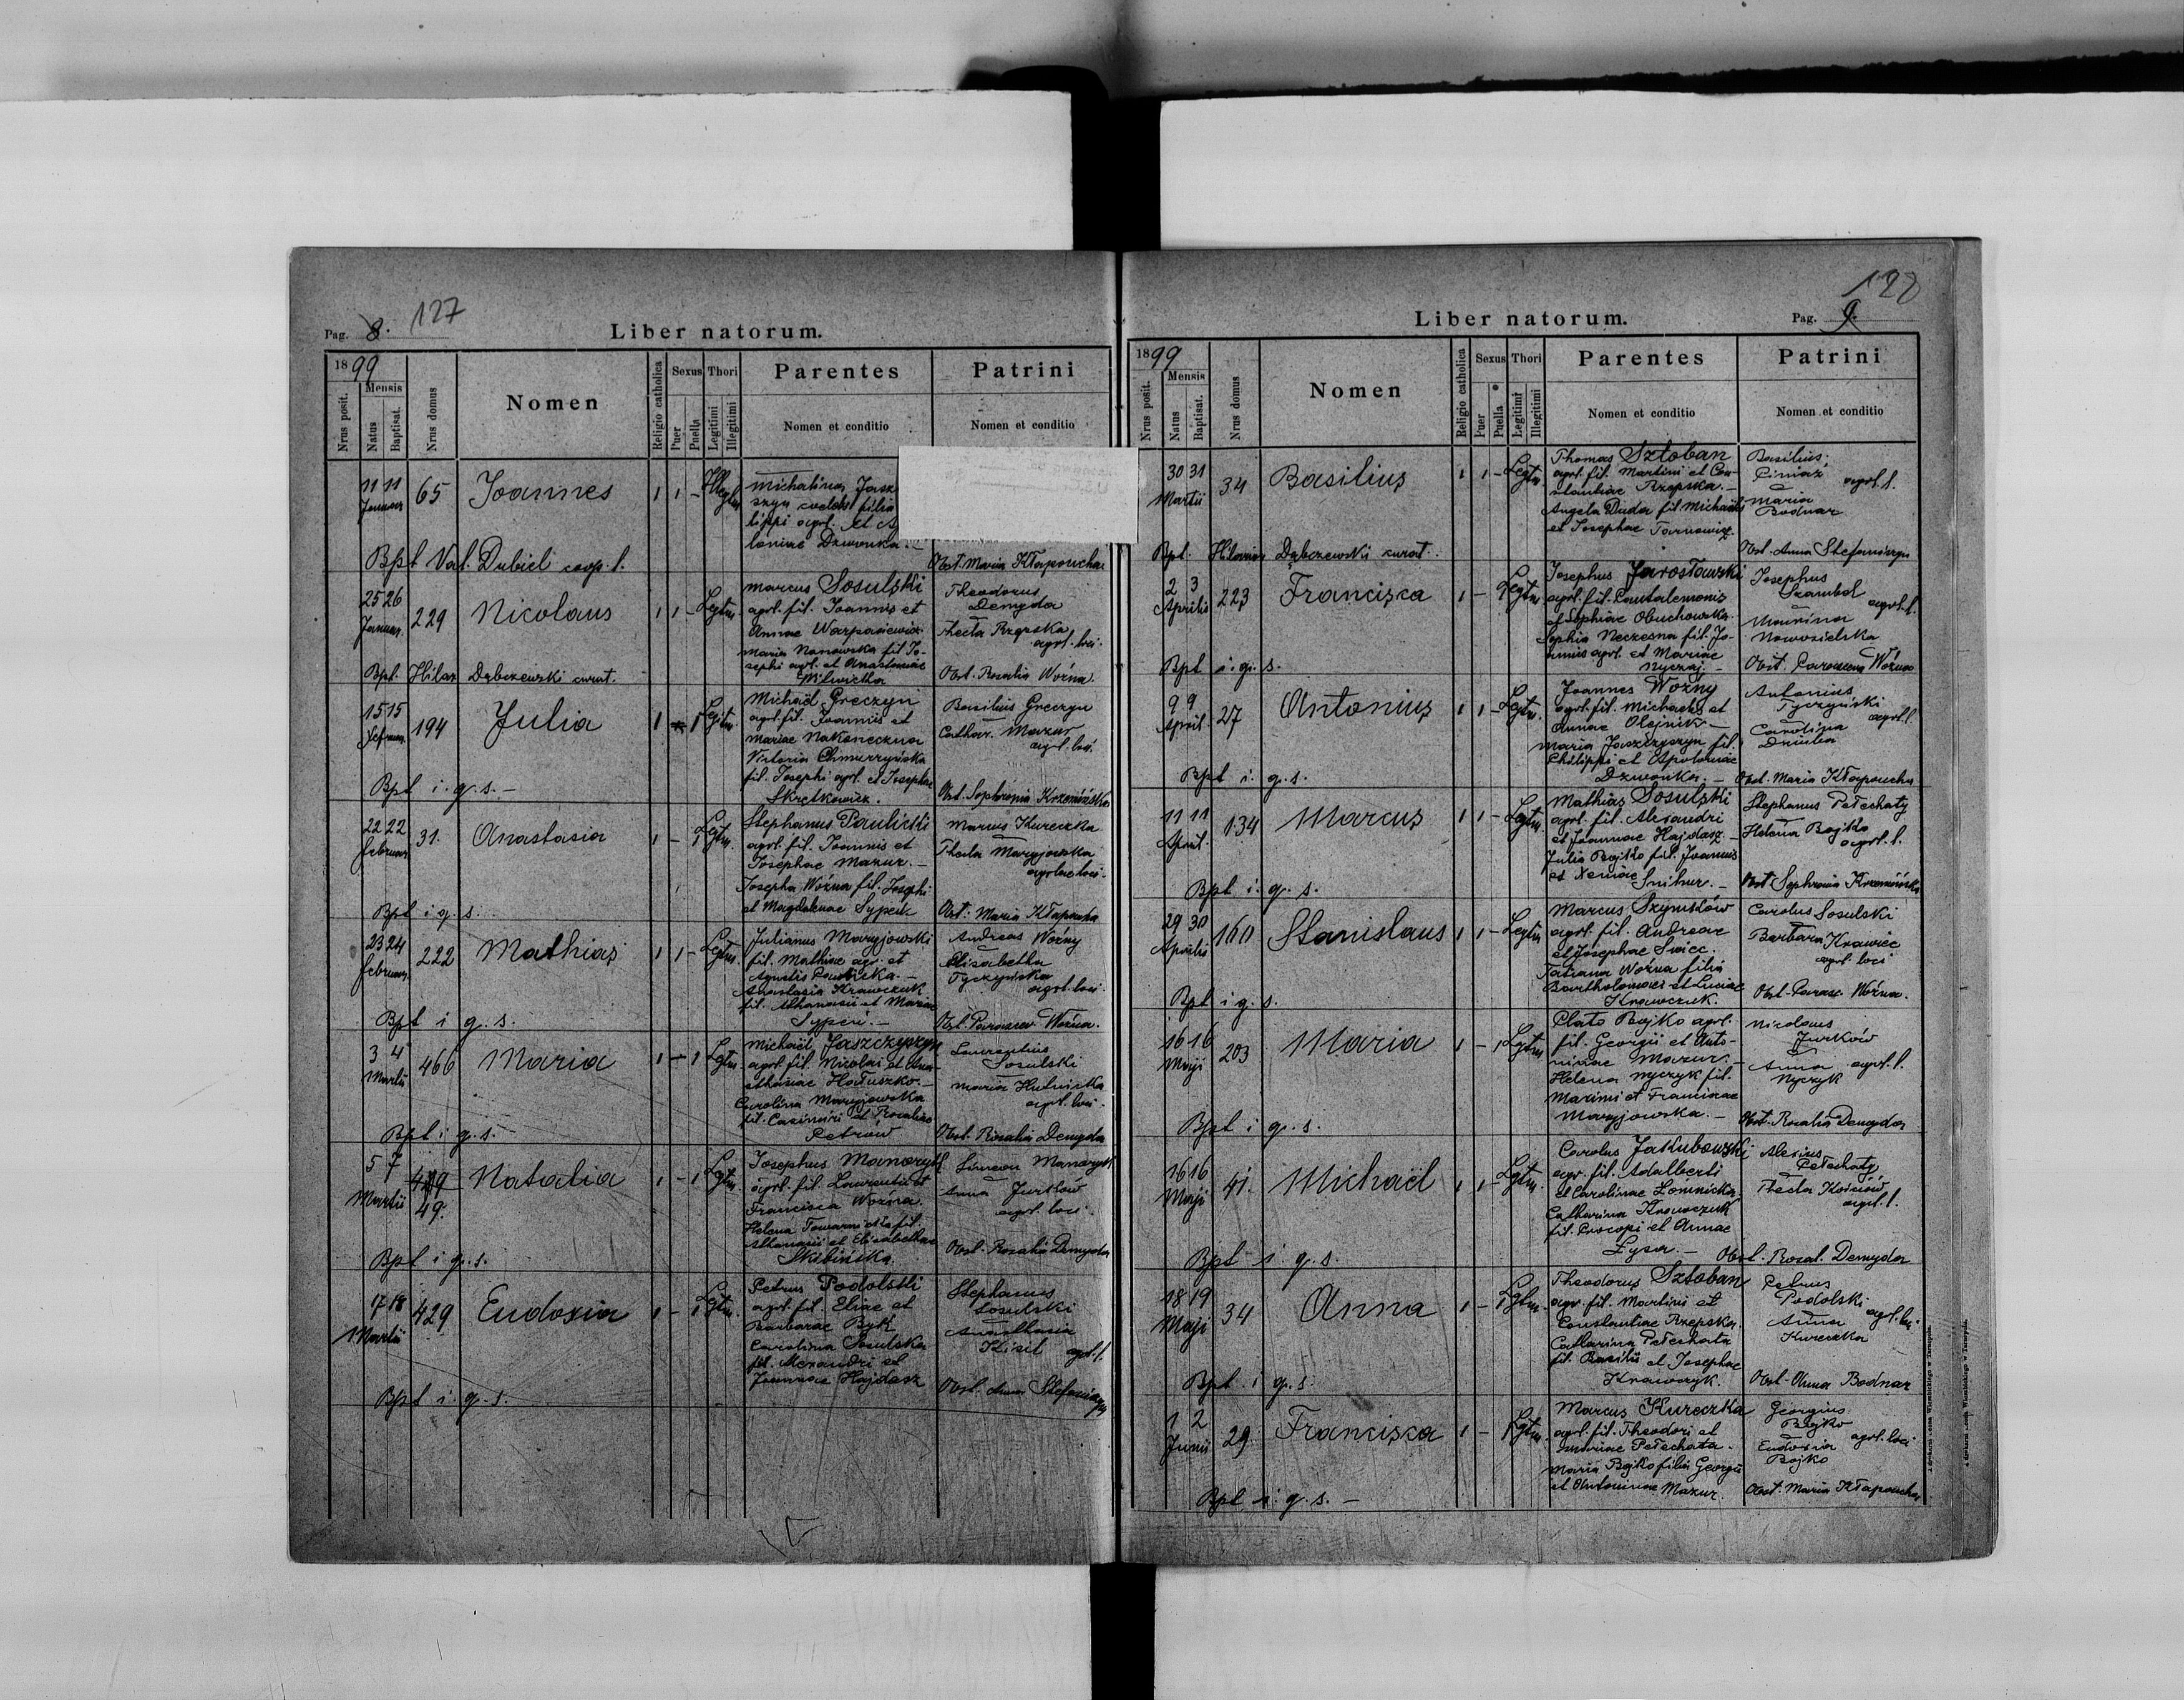 127
Pag. 8.
Liber natorum.
1899
Mensis
Nrus posit.
Natus
Baptisat.
Nrus domus
Nomen
Religio catholica
Sexus
Puer
Puella
Thori
Legitimi
Illegitimi
Parentes
Nomen et conditio
Patrini
Nomen et conditio
11 11
65
Joannes
1 1 -
Michalina Jasz
lippi agrl. et A
loniae Dzwonka. -
Bpt Val. Dubiel coop. l.
Obst. Maria Kłapoucha
25 26
Januar.
229
Nicolaus
1 1 -
Legtm.
Marcus Sosulski
agrl. fil. Joannis et
Annae Warpasiewicz
Maria Nanowska fil. Jo-
sephi agrl. et Anastasiae
Milwicka
Theodorus
Demyda
Thecla Rzepska
agrl. loci.
Bpt. Hilar Dąbczewski curat.
Obst. Rosalia Woźna.
15 15
194
Julia
1 - 1
Legtm.
Michaël Greczyn
agrl. fil. Joannis et
Mariae Nakoneczna
Victoria Chmurzyńska
fil. Josephi agrl. et Josephae
Skrętkowicz.
Basilius Greczyn
Cathar. Mazur
agrl. loci.
Bpt i. g. s. -
Obst. Sophronia Krzemińska
22 22
Februar.
31.
Anastasia
1 - 1
Legtm.
Stephanus Paulicki
agrl. fil. Joannis et
Josephae Mazur. -
Josepha Woźna fil. Josephi
et Magdalenae Sypeń
Marcus Kureczka
Thecla Maryjowska
agrolae loci -
Bpt i g. s.
Obst. Maria Kłapoucha
23 24
Februar.
222
Mathias
1 1 -
Legtm.
Julianus Maryjowski
fil. Mathiae agr. et
Agnetis Paulicka. -
Anastasia Krawczuk
fil. Athanasii et Mariae
Sypeń. -
Andreas Woźny
Elisabetha
Tyczyńska
agrl. loci
Bpt i g. s.
Obst. Parascev. Woźna.
3 4
Martii
466
Maria
1 - 1
Legtm.
Michaël Jaszczyszyn
agrl. fil. Nicolai et Ana-
sthasiae Hałuszko. -
Carolina Maryjowska
fil. Casimiri et Rosaliae
Petrów
Laurentius
Sosulski
Maria Hutnicka
agrl. loci.
Bpt i g. s.
Obst. Rosalia Demyda
5 7
Martii
449
49.
Natalia
1 - 1
Legtm.
Josephus Manoryk
agrl. fil. Laurentii et
Francisca Woźna.
Helena Towarnicka fil.
Athanasii et Elisabethae
Skibińska.
Simeon Manoryk
Anna Jurków
agrl. loci.
Bpt i g. s.
Obst. Rosalia Demyda
17 18
Martii
429
Eudoxia
1 - 1
Legtm.
Petrus Podolski
agrl. fil. Eliae et
Barbarae Byk
Carolina Sosulska
fil. Alexandri et
Joannae Hajdasz
Stephanus
Sosulski
Anasthasia
Kisil agrl. l.
Bpt i. g. s.
Obst. Anna Stefaniszyn
128
Liber natorum.
Pag. 9.
1899
Mensis
Nrus posit.
Natus
Baptisat.
Nrus domus
Nomen
Religio catholica
Sexus
Puer
Puella
Thori
Legitimi
Illegitimi
Parentes
Nomen et conditio
Patrini
Nomen et conditio
30 31
Martii
34
Basilius
1 1 -
Legtm.
Thomas Sztoban
agrl. fil. Martini et Con-
stantiae Rzepska. -
Angela Duda fil. Michaëlis
et Josephae Tarnowicz.
Basilius
Piniaż
Maria
Bodnar
agrl. l.
Bpt. Hilarius Dąbczewski curat.
Obst. Anna Stefaniszyn
2 3
Aprilis
223
Francisca
1 - 1
Legtm.
Josephus Jarosławski
agrl. fil. Pantalemonis
et Sophiae Obuchowska.
Sophia Neczesna fil. Jo-
annis agrl. et Mariae
Nyczaj. -
Josephus
Szambel
agrl. l.
Maurina
Nowosielska
Bpt i. g. s.
Obst. Parasceva Woźna
9 9
April.
27
Antonius
1 1 -
Legtm.
Joannes Woźny
agrl. fil. Michaelis et
Annae Olejnik -
Maria Jaszczyszyn fil.
Philippi et Apoloniae
Dzwonka. -
Antonius
Tyczyński
agrl. l.
Carolina
Dziuba
Bpt i. g. s.
Obst. Maria Kłapoucha
11 11
April.
134
Marcus
1 1 -
Legtm.
Mathias Sosulski
agrl. fil. Alexandri
et Joannae Hajdasz -
Julia Bojko fil. Joannis
et Xeniae Snihur. -
Stephanus Pełechaty
Helena Bojko
agrl. l.
Bpt i. g. s.
Obst. Sophronia Krzemińska
29 30
Aprilis
160
Stanislaus
1 1 -
Legtm
Marcus Szymków
agrl. fil. Andreae
et Josephae Swiec.
Tatiana Woźna filia
Bartholomaei et Luciae
Krawczuk.
Carolus Sosulski
Barbara Krawiec
agrl. loci
Bpt i g. s.
Obst. Parasc. Woźna.
16 16
Maji
203
Maria
1 - 1
Legtm
Plato Bojko agrl.
fil. Georgii et Anto-
ninae Mazur. -
Helena Nyczyk fil.
Marini et Franciscae
Maryjowska. -
Nicolaus
Jurków
Anna agrl. l.
Nyczyk
Bpt i g. s.
Obst. Rosalia Demyda
16 16
Maji
41.
Michaël
1 1 -
Legtm.
Carolus Jakubowski
agr. fil. Adalberti
et Carolinae Łomnicka.
Catharina Krawczuk
fil. Procopi et Annae
Łysa. -
Alexius
Pełechaty
Thecla Kościów
agrl. l.
Bpt i g. s.
Obst. Rosal. Demyda
18 19
Maji
34
Anna
1 - 1
Legtm.
Theodorus Sztoban
agr. fil. Martini et
Constantiae Rzepska.
Catharina Pełechata
fil. Basilii et Josephae
Krawczyk.
Petrus
Podolski
Anna
Kureczka
Bpt i g. s.
Obst. Anna Bodnar
1 2
Junii
29
Francisca
1 - 1
Legtm.
Marcus Kureczka
agrl. fil. Theodori et
Mariae Pełechata.
Maria Bojko filia Georgii
et Antoninae Mazur.
Georgius
Bojko
agrl. loci
Eudoxia
Bojko
Bpt i. g. s. -
Obst. Maria Kłapoucha